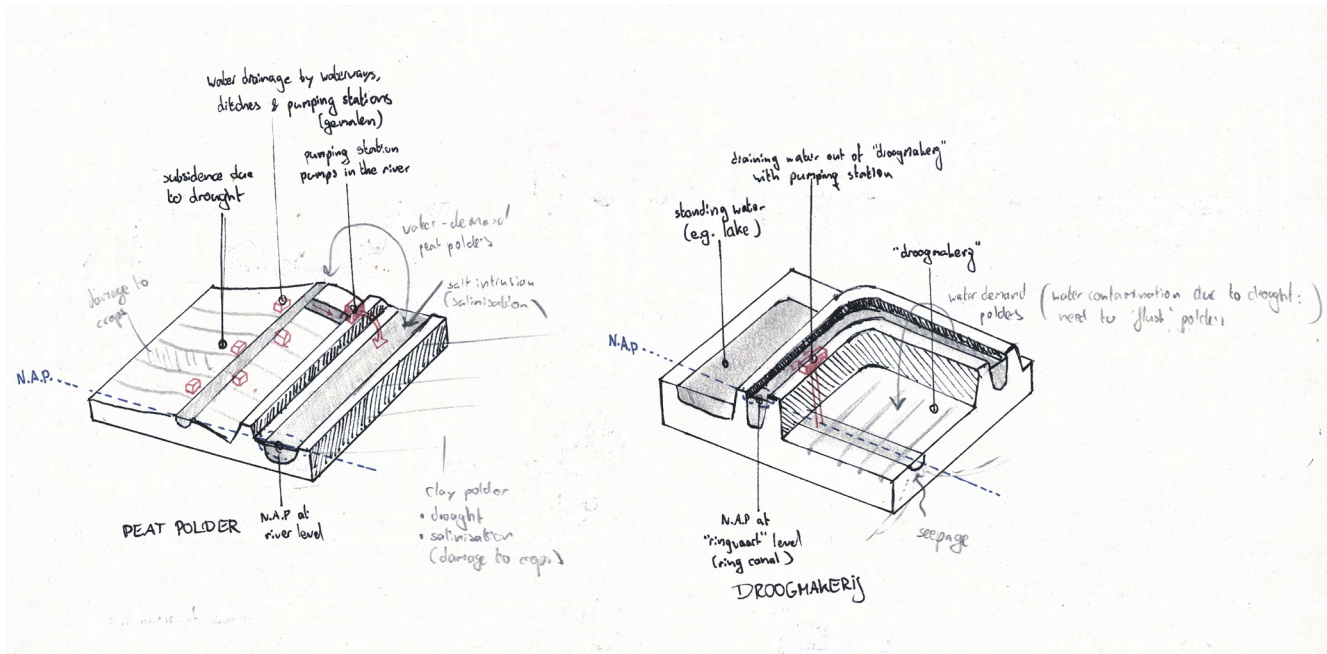 Water drainage by waterways,
ditches & pumping stations
(gemalen)
pumping station
pumps in the river
subsidence due
to drought
water-demand
peat polders
salt intrusion
(salinisation)
damage to
crops
N.A.P.
PEAT POLDER
N.A.P at
river level
clay polder
• drought
• salinisation
(damage to crops)
draining water out of "droogmakerij"
with pumping station
standing water
(e.g. lake)
"droogmakerij"
water demand
polders
(water contamination due to drought:
need to 'flush' polders)
N.A.P.
N.A.P at
"ringvaart" level
(ring canal)
seepage
DROOGMAKERIJ